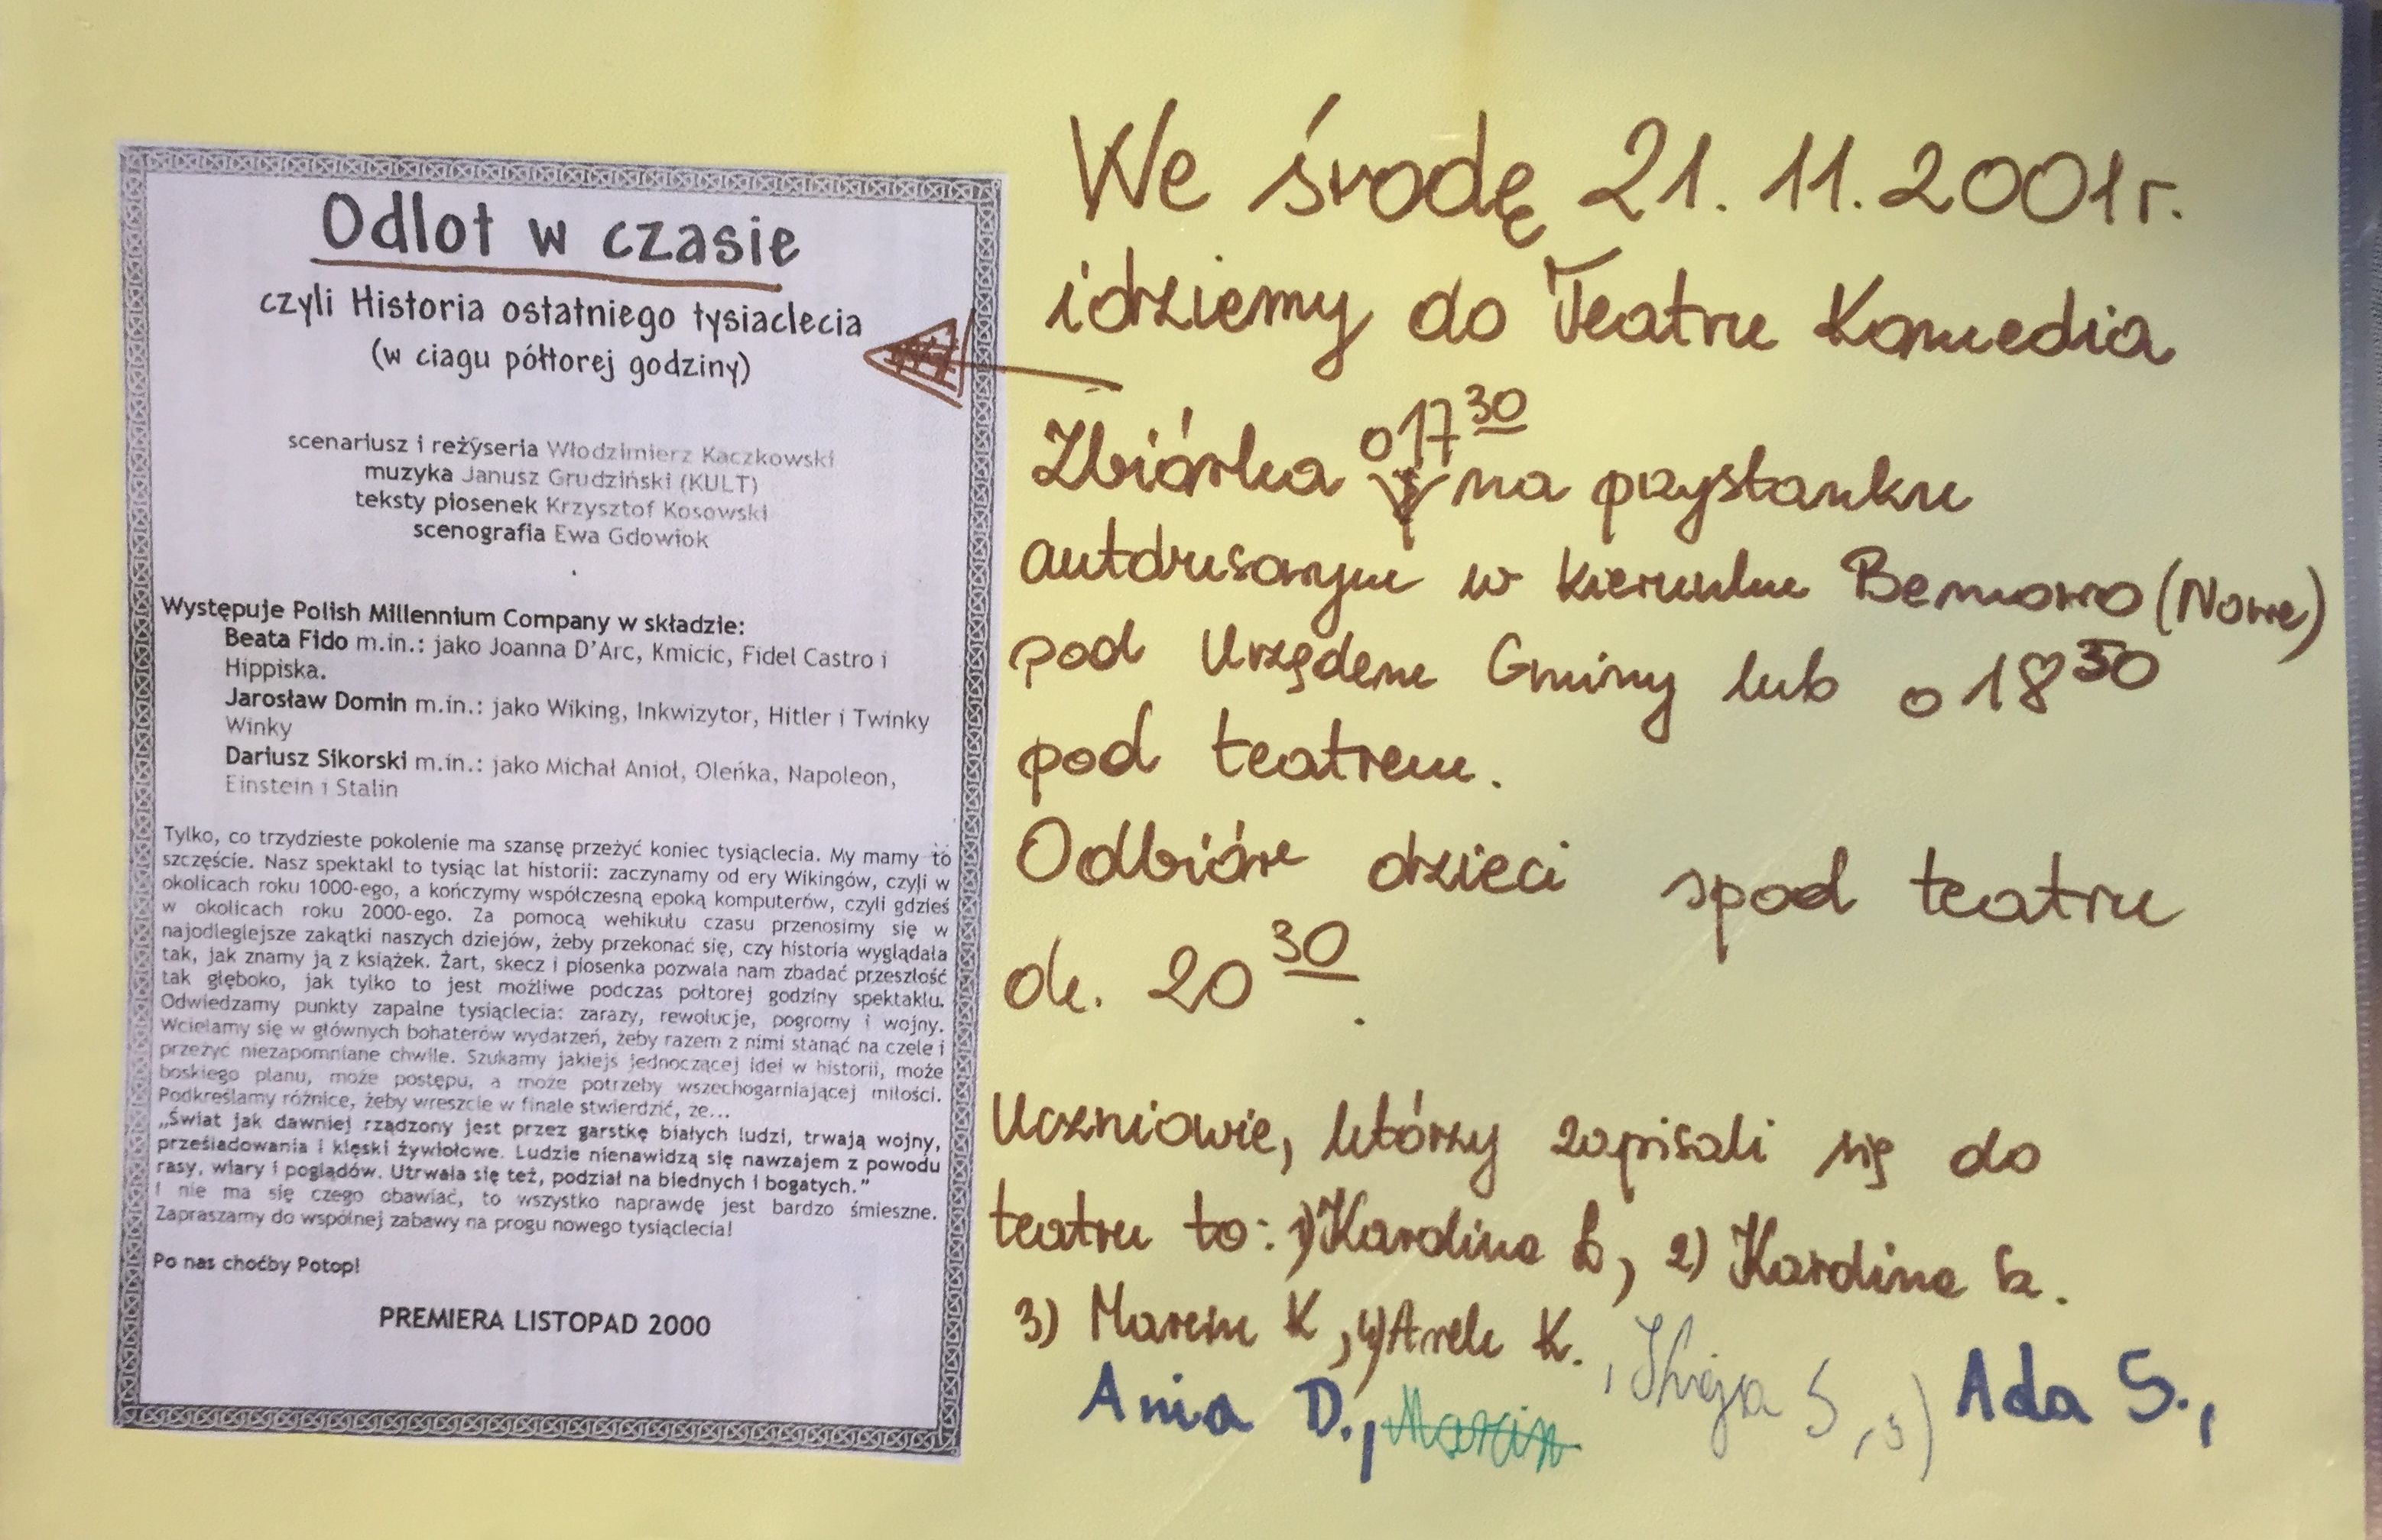 Odlot w czasie
czyli Historia ostatniego tysiaclecia
(w ciagu półtorej godziny)
scenariusz i reżyseria Włodzimierz Kaczkowski
muzyka Janusz Grudziński (KULT)
teksty piosenek Krzysztof Kosowski
scenografia Ewa Gdowiok
Występuje Polish Millennium Company w składzie:
Beata Fido m.in.: jako Joanna D'Arc, Kmicic, Fidel Castro i
Hippiska.
Jarosław Domin m.in.: jako Wiking, Inkwizytor, Hitler i Twinky
Winky
Dariusz Sikorski m.in.: jako Michał Anioł, Oleńka, Napoleon,
Einstein i Stalin
Tylko, co trzydzieste pokolenie ma szansę przeżyć koniec tysiąclecia. My mamy to
szczęście. Nasz spektakl to tysiąc lat historii: zaczynamy od ery Wikingów, czyli w
okolicach roku 1000-ego, a kończymy współczesną epoką komputerów, czyli gdzieś
w okolicach roku 2000-ego. Za pomocą wehikułu czasu przenosimy się w
najodleglejsze zakątki naszych dziejów, żeby przekonać się, czy historia wyglądała
tak, jak znamy ją z książek. Żart, skecz i piosenka pozwala nam zbadać przeszłość
tak głęboko, jak tylko to jest możliwe podczas półtorej godziny spektaklu.
Odwiedzamy punkty zapalne tysiąclecia: zarazy, rewolucje, pogromy i wojny.
Wcielamy się w głównych bohaterów wydarzeń, żeby razem z nimi stanąć na czele i
przeżyć niezapomniane chwile. Szukamy jakiejś jednoczącej idei w historii, może
boskiego planu, może postępu, a może potrzeby wszechogarniającej miłości.
Podkreślamy różnice, żeby wreszcie w finale stwierdzić, że...
„Świat jak dawniej rządzony jest przez garstkę białych ludzi, trwają wojny,
prześladowania i klęski żywiołowe. Ludzie nienawidzą się nawzajem z powodu
rasy, wiary i poglądów. Utrwala się też, podział na biednych i bogatych."
I nie ma się czego obawiać, to wszystko naprawdę jest bardzo śmieszne.
Zapraszamy do wspólnej zabawy na progu nowego tysiąclecia!
Po nas choćby Potop!
PREMIERA LISTOPAD 2000
We środę 21.11.2001r.
idziemy do Teatru Komedia
Zbiórka o 17 30 na przystanku
autobusowym w kierunku Bemowo (Nowe)
pod Urzędem Gminy lub o 18 30
pod teatrem.
Odbiór dzieci spod teatru
ok. 20 30.
Uczniowie, którzy zapisali się do
teatru to: 1) Karolina Ł, 2) Karolina
3) Marcin K, 4) Arek K.
Ania D., Marcin , S , 5) Ada S.,